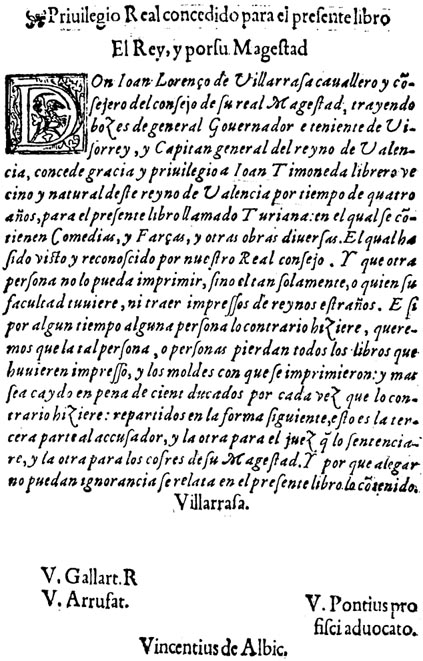 Priuilegio Real concedido para el presente libro
El Rey, y por su Magestad
DOn Ioan Lorenço de Villarrasa cauallero y cõ-
sejero del consejo de su real Magestad, trayendo
bozes de general Gouernador e teniente de Vi-
sorrey, y Capitan general del reyno de Valen-
cia, concede gracia y priuilegio a Ioan Timoneda librero ve
cino y natural deste reyno de Valencia por tiempo de quatro
años, para el presente libro llamado Turiana: en el qual se cõ-
tienen Comedias, y Farças, y otras obras diuersas. El qual ha
sido visto y reconoscido por nuestro Real consejo. Y que otra
persona no lo pueda imprimir, sino el tan solamente, o quien su
facultad tuuiere, ni traer impressos de reynos estraños. E si
por algun tiempo alguna persona lo contrario hiziere, quere-
mos que la tal persona, o personas pierdan todos los libros que
huuieren impresso, y los moldes con que se imprimieron: y mas
sea caydo en pena de cient ducados por cada vez que lo con-
trario hiziere: repartidos en la forma siguiente, esto es la ter-
cera parte al accusador, y la otra para el juez q̃ lo sentencia-
re, y la otra para los cofres de su Magestad. Y por que alegar
no puedan ignorancia se relata en el presente libro lo cõtenido.
Villarrasa.
V. Gallart. R
V. Arrufat.
V. Pontius pro
fisci aduocato.
Vincentius de Albic.